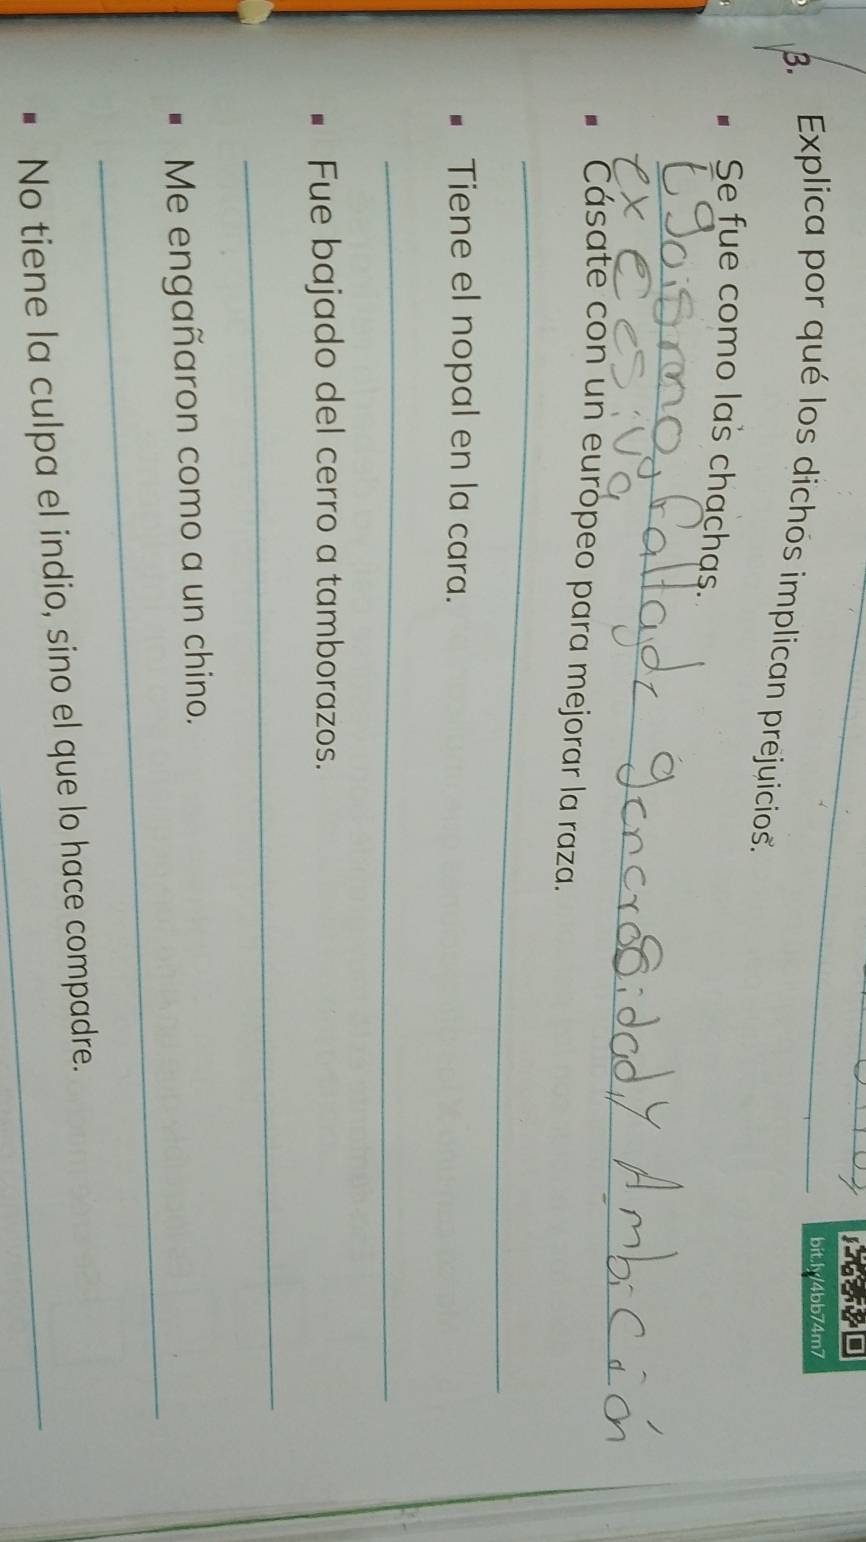 3. Explica por qué los dichos implican prejuicios.
bit.ly/4bb74m7
▪ Se fue como las chachas.
Egoismo, falta de generosidad, y Ambición
excesiva
▪ Cásate con un europeo para mejorar la raza.
▪ Tiene el nopal en la cara.
▪ Fue bajado del cerro a tamborazos.
▪ Me engañaron como a un chino.
▪ No tiene la culpa el indio, sino el que lo hace compadre.